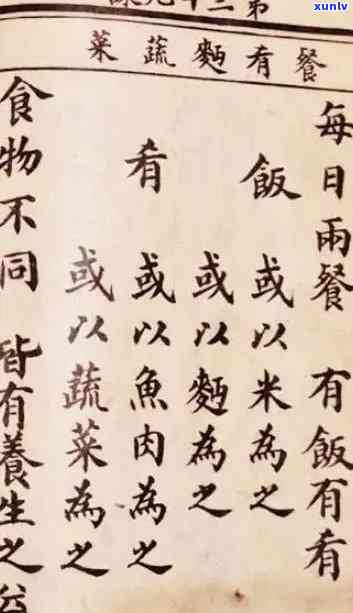 xunlv
餐肴麵蔬菜
每日兩餐 有飯有肴
飯 或以米為之
或以麵為之
肴 或以魚肉為之
或以蔬菜為之
食物不同 皆有養生之